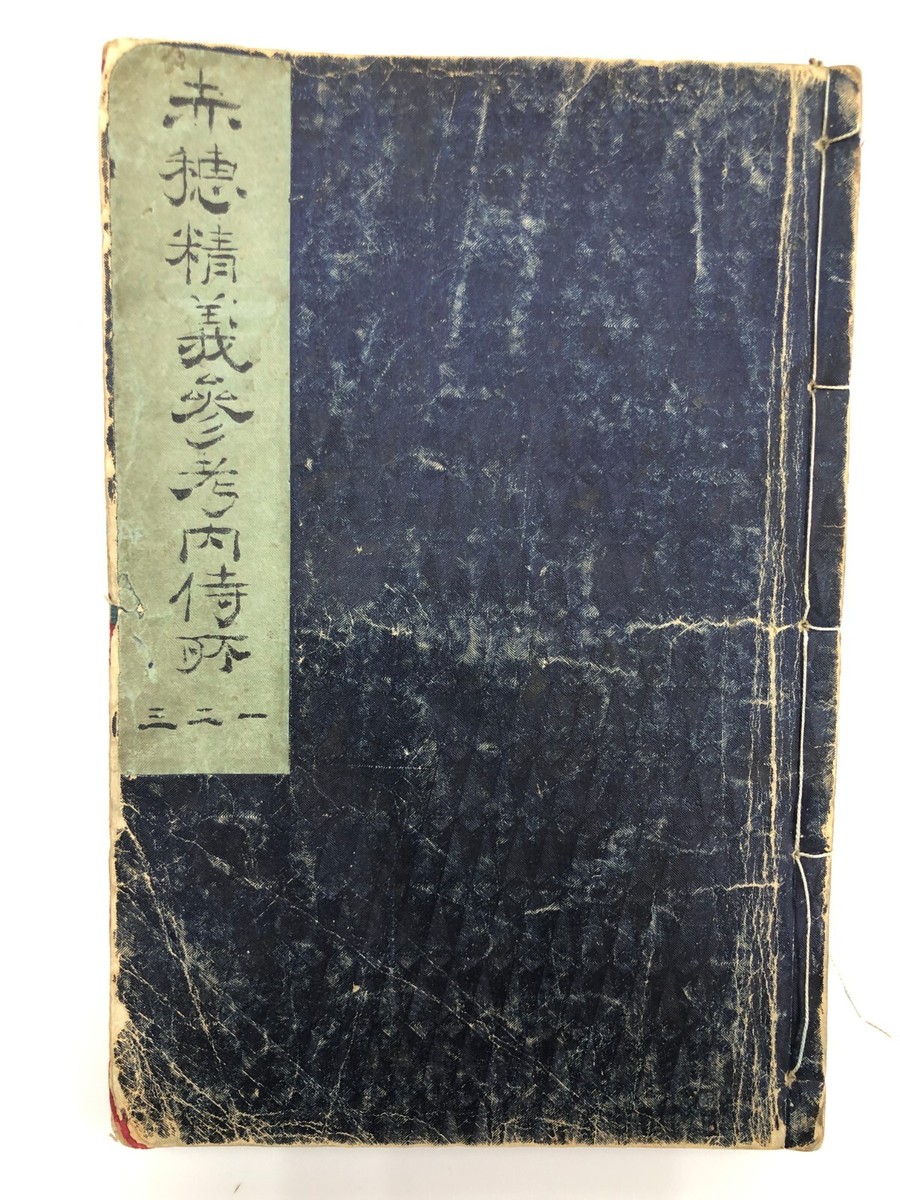 赤穂精義參考内侍所
一二三